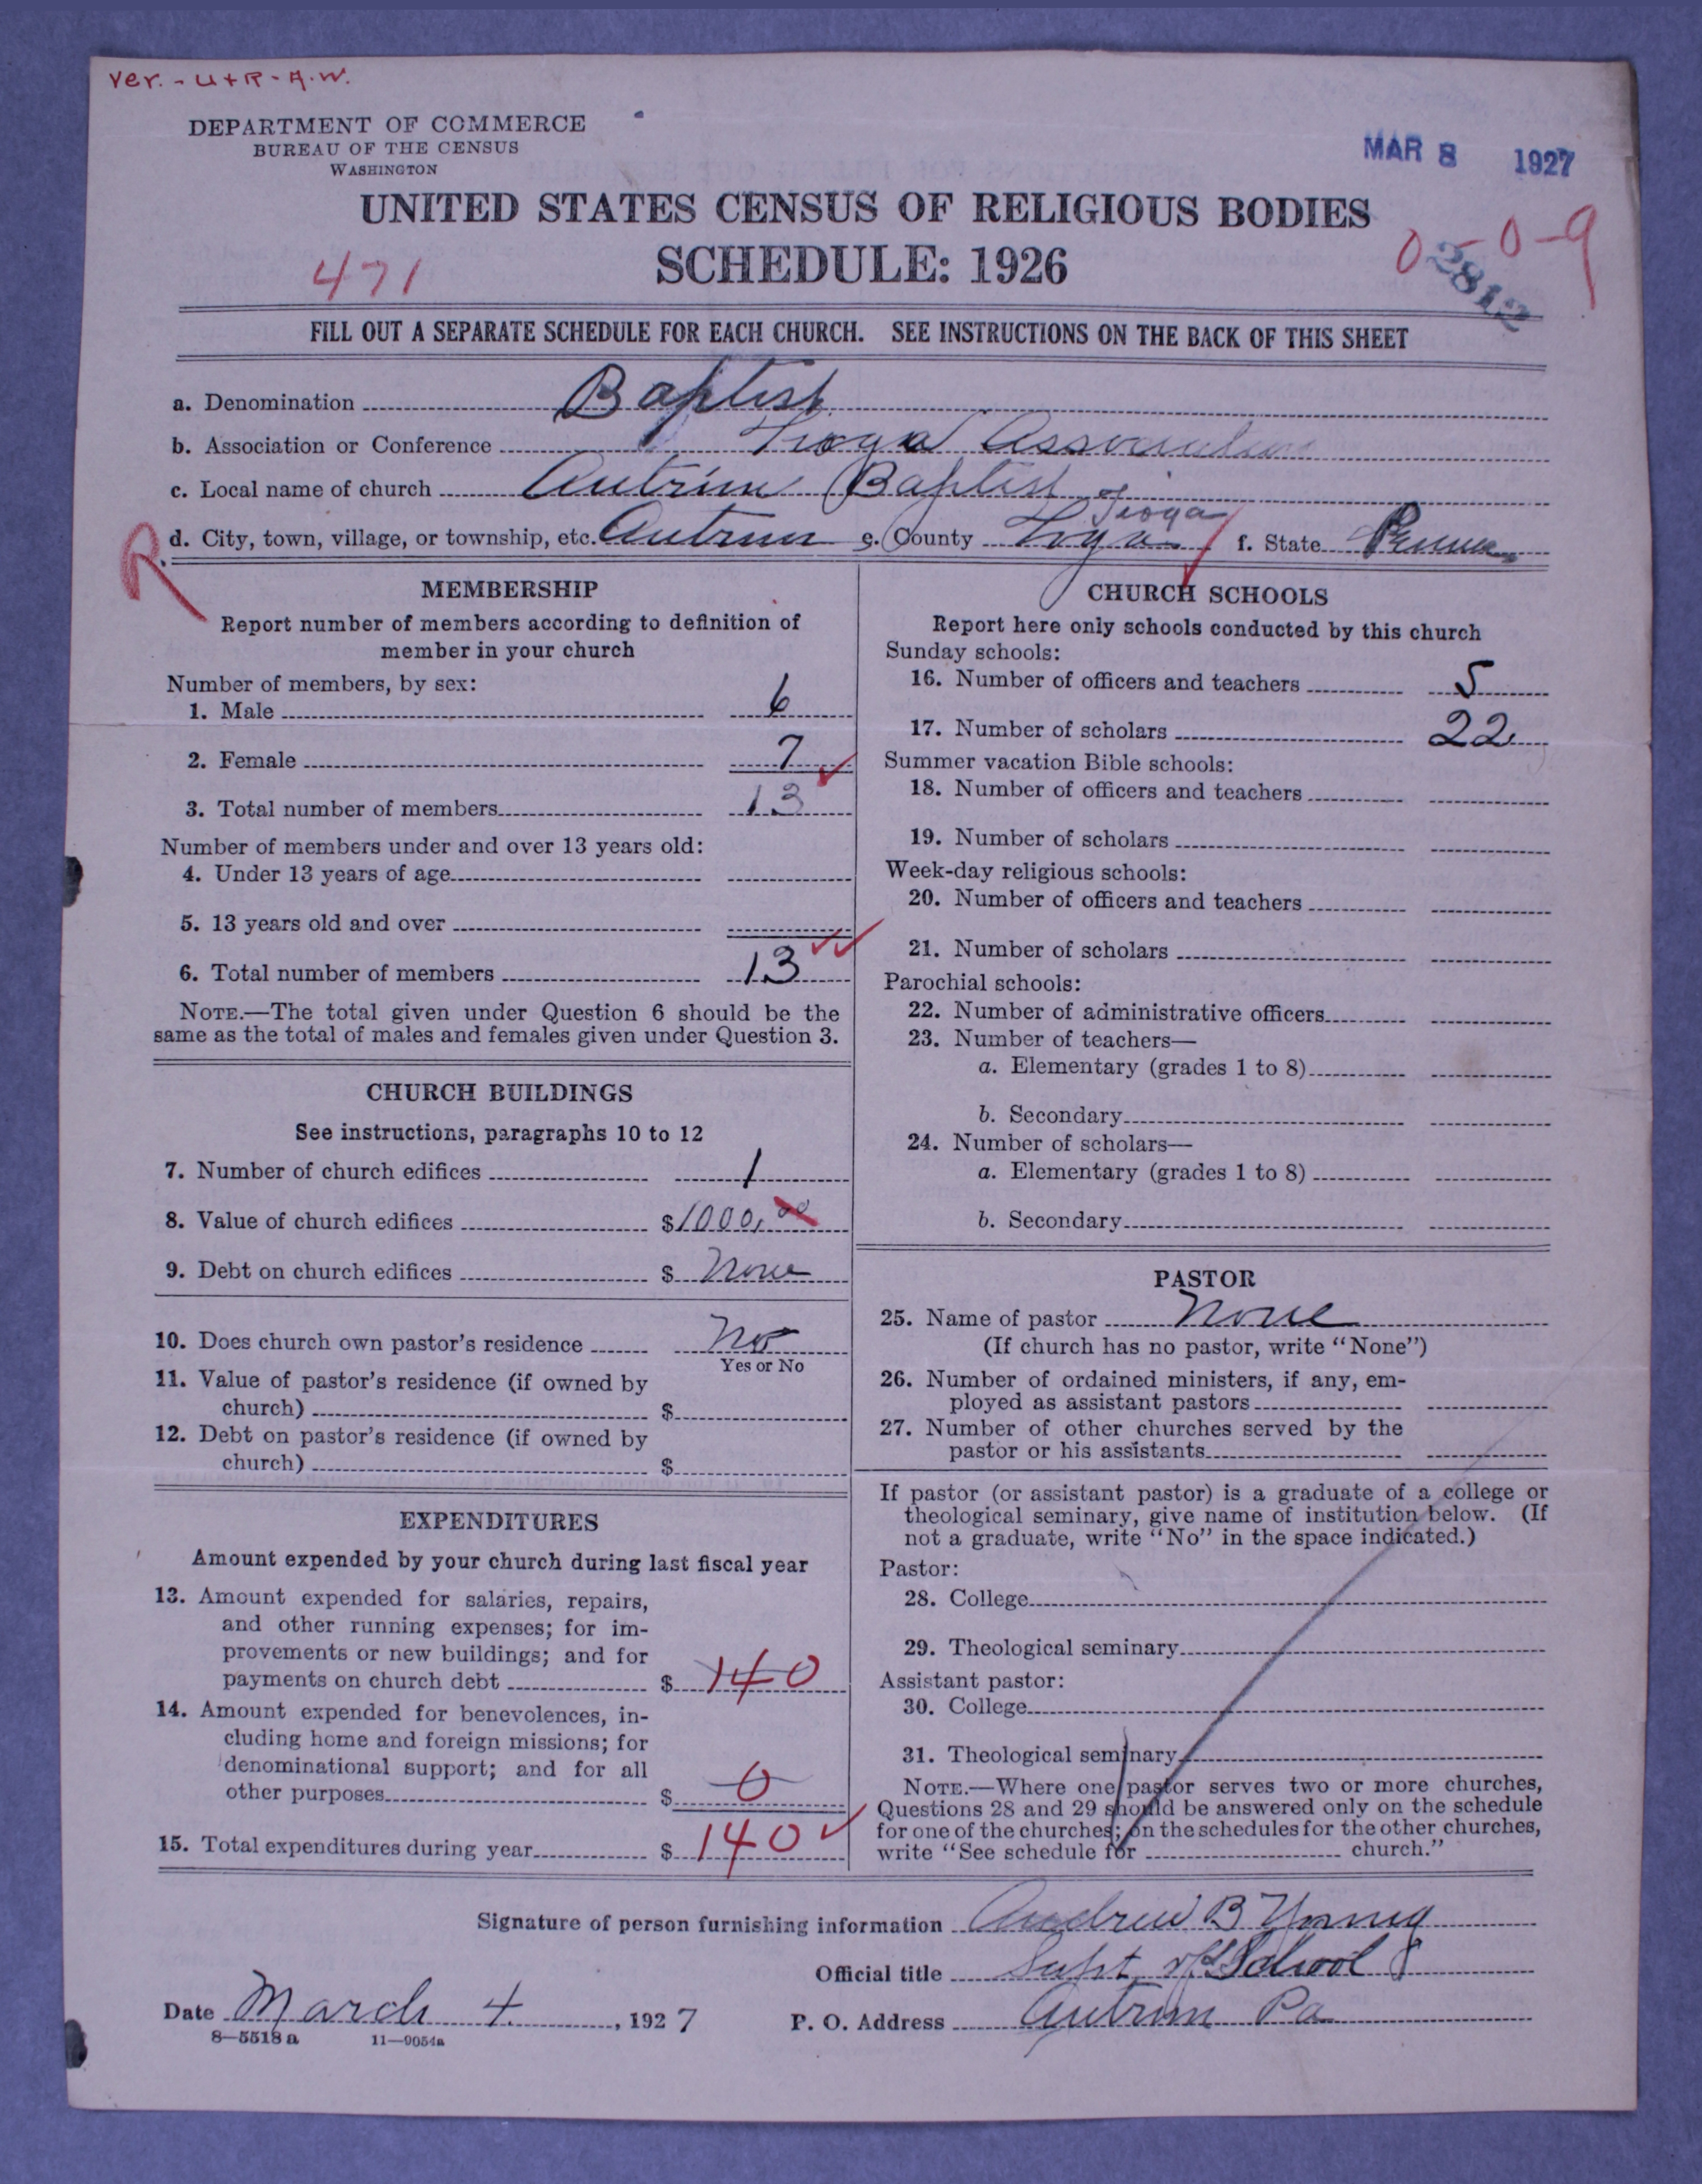 Ver. - U + R - A.W.
DEPARTMENT OF COMMERCE
BUREAU OF THE CENSUS
WASHINGTON
MAR 8 1927
UNITED STATES CENSUS OF RELIGIOUS BODIES
SCHEDULE: 1926
471
0-0-9
2812
FILL OUT A SEPARATE SCHEDULE FOR EACH CHURCH. SEE INSTRUCTIONS ON THE BACK OF THIS SHEET
a. Denomination Baptist
b. Association or Conference Tioga Association
c. Local name of church Antrim Baptist
Tioga
d. City, town, village, or township, etc. Antrim e. County Tioga f. State Penna
R
MEMBERSHIP
Report number of members according to definition of
member in your church
Number of members, by sex:
1. Male 6
2. Female 7
3. Total number of members 13
Number of members under and over 13 years old:
4. Under 13 years of age
5. 13 years old and over
6. Total number of members 13
NOTE.—The total given under Question 6 should be the
same as the total of males and females given under Question 3.
CHURCH BUILDINGS
See instructions, paragraphs 10 to 12
7. Number of church edifices 1
8. Value of church edifices $1000,00
9. Debt on church edifices $ None
10. Does church own pastor's residence No
Yes or No
11. Value of pastor's residence (if owned by
church) $
12. Debt on pastor's residence (if owned by
church) $
EXPENDITURES
Amount expended by your church during last fiscal year
13. Amount expended for salaries, repairs,
and other running expenses; for im-
provements or new buildings; and for
payments on church debt $ 140
14. Amount expended for benevolences, in-
cluding home and foreign missions; for
denominational support; and for all
other purposes $ 0
15. Total expenditures during year $ 140
CHURCH SCHOOLS
Report here only schools conducted by this church
Sunday schools:
16. Number of officers and teachers 5
17. Number of scholars 22
Summer vacation Bible schools:
18. Number of officers and teachers
19. Number of scholars
Week-day religious schools:
20. Number of officers and teachers
21. Number of scholars
Parochial schools:
22. Number of administrative officers
23. Number of teachers—
a. Elementary (grades 1 to 8)
b. Secondary
24. Number of scholars—
a. Elementary (grades 1 to 8)
b. Secondary
PASTOR
25. Name of pastor None
(If church has no pastor, write "None")
26. Number of ordained ministers, if any, em-
ployed as assistant pastors
27. Number of other churches served by the
pastor or his assistants
If pastor (or assistant pastor) is a graduate of a college or
theological seminary, give name of institution below. (If
not a graduate, write "No" in the space indicated.)
Pastor:
28. College
29. Theological seminary
Assistant pastor:
30. College
31. Theological seminary
NOTE.—Where one pastor serves two or more churches,
Questions 28 and 29 should be answered only on the schedule
for one of the churches; on the schedules for the other churches,
write "See schedule for church."
Signature of person furnishing information Andrew B Young
Official title Supt of S School
Date March 4, 1927 P. O. Address Antrim Pa
8—5518 a 11—9054a